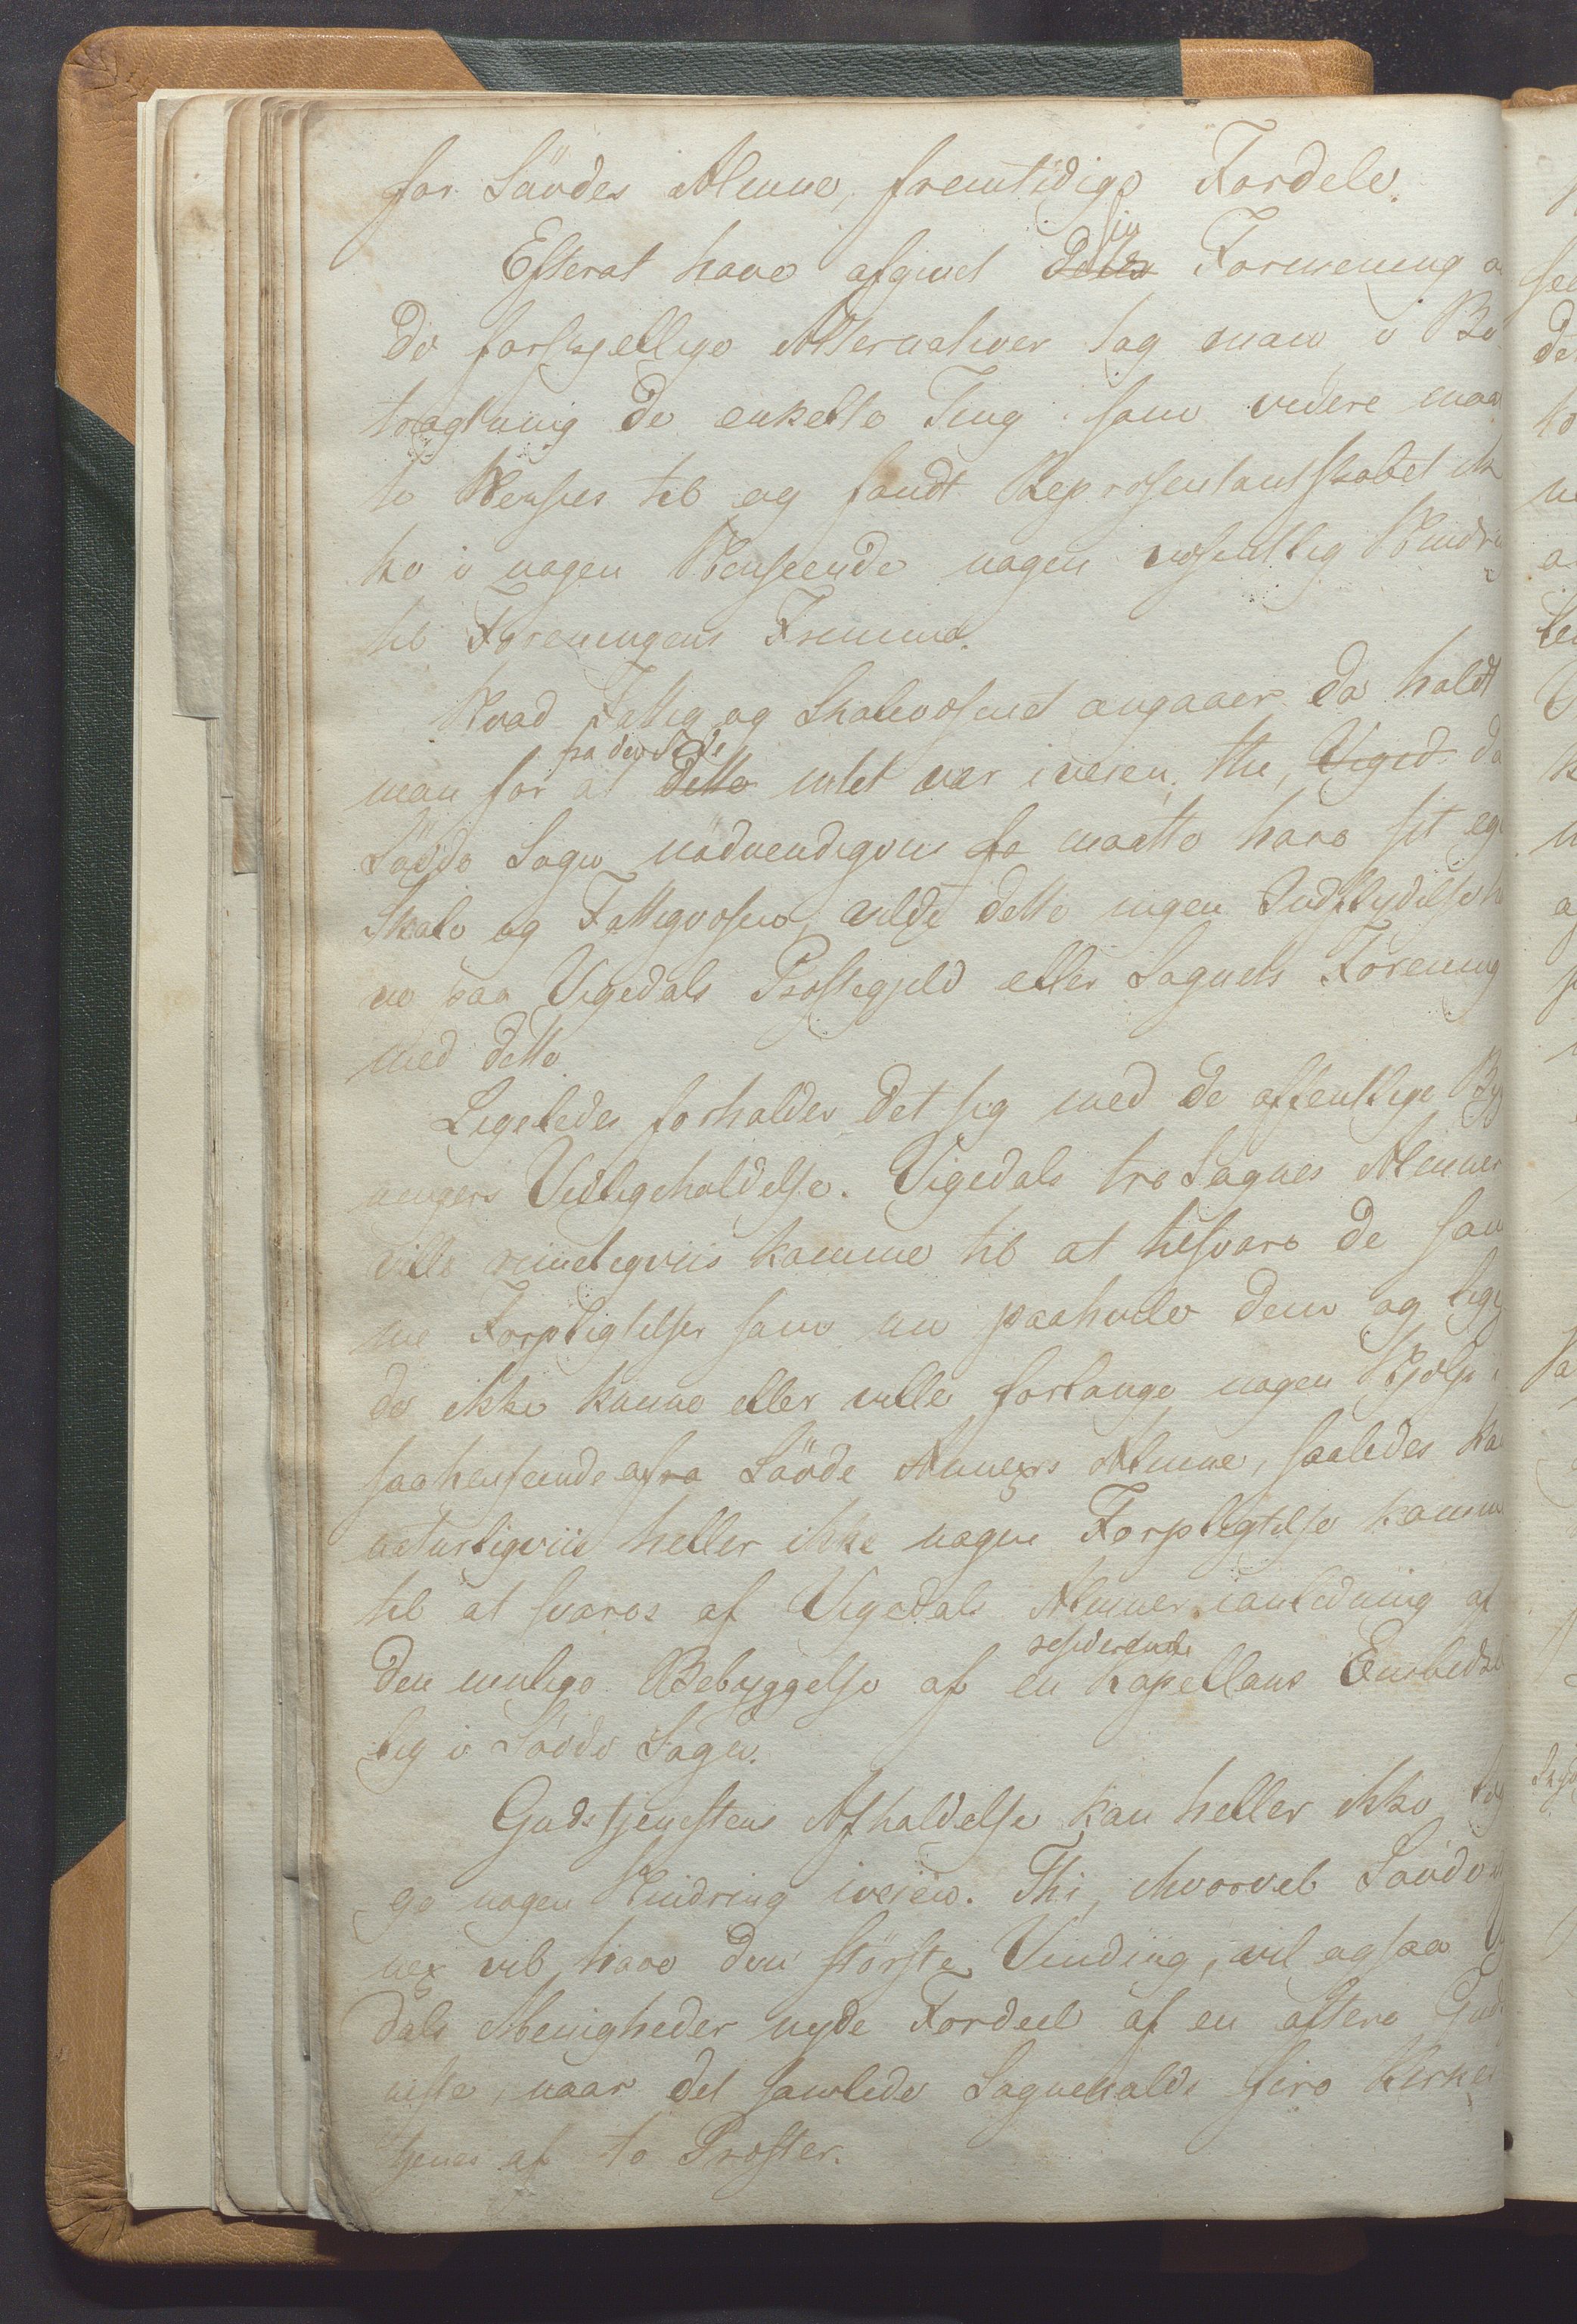 for Søvdes Almue, fremtidige Fordele.
Efterat have afgivet dette sin Formening o
de forskjellige Alternativer tog man i Be
tragtning de enkelte Ting som videre maat
te Henses til og fandt Repræsentantskabet ik
ke i nogen Henseende nogen væsentlig Hindri
til Foreningens Fremme.
Hvad Fattig og Skolevæsenet angaaer da holdt
man for at dette fra den Side intet var iveien, thi, Viged da
Søvde Sogn nødvendigvis fa maatte have sit eg
Skole og Fattigvæsen, vilde dette ingen Indflydelse ha
ve paa Vigedals Præstegjeld eller Sognets Forening
med dette.
Ligeledes forholder det sig med de offentlige Byg
ningers Vedligeholdelse. Vigedals tre Sognes Almuer
ville rimeligviis komme til at tilsvare de sam
me Forpligtelser som nu paahvile dem og lige
de ikke kunne eller ville forlange nogen Hjelp i
saahenseende afra Søvde Annexs Almue, saaledes ka
naturligviis heller ikke nogen Forpligtelse komme
til at svares af Vigedals Almuer ianledning af
den mulige Bebyggelse af en residerende Kapellans Embedsbo
lig i Søvde Sogn.
Gudstjenestens Afholdelse kan heller ikke læg
ge nogen Hindring iveien. Thi, hvorvel Søvde An
nex vil have den største Vinding, vil ogsaa Vi
dals Menigheder nyde Fordeel af en oftere Gudstj
neste, naar det samlede Sognekalds fire Kirker
tjenes af to Præster.